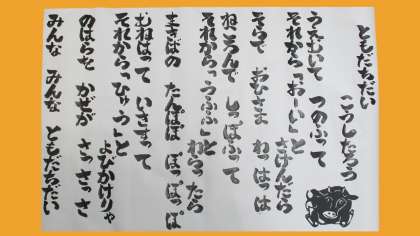 ともだちだい
こうしたろう
うえむいて つのふって
それから「おーい」と
さけんだら
そらで おひさま わっはっは
ねころんで しっぽふって
それから「うふふ」と
わらったら
まきばの たんぽぽ ぽっぽっぽ
むねはって いきすって
それから「ひゅう」と
よびかけりゃ
のはらを かぜが さっさっさ
みんな みんな ともだちだい